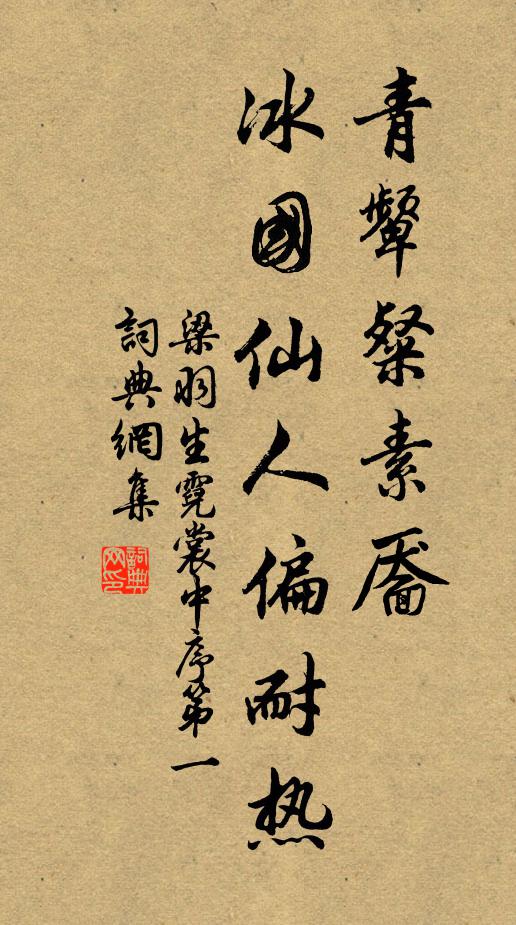 青顰粲素靨
冰國仙人偏耐热
梁羽生霓裳中序第一
詞典網集
詞典網印